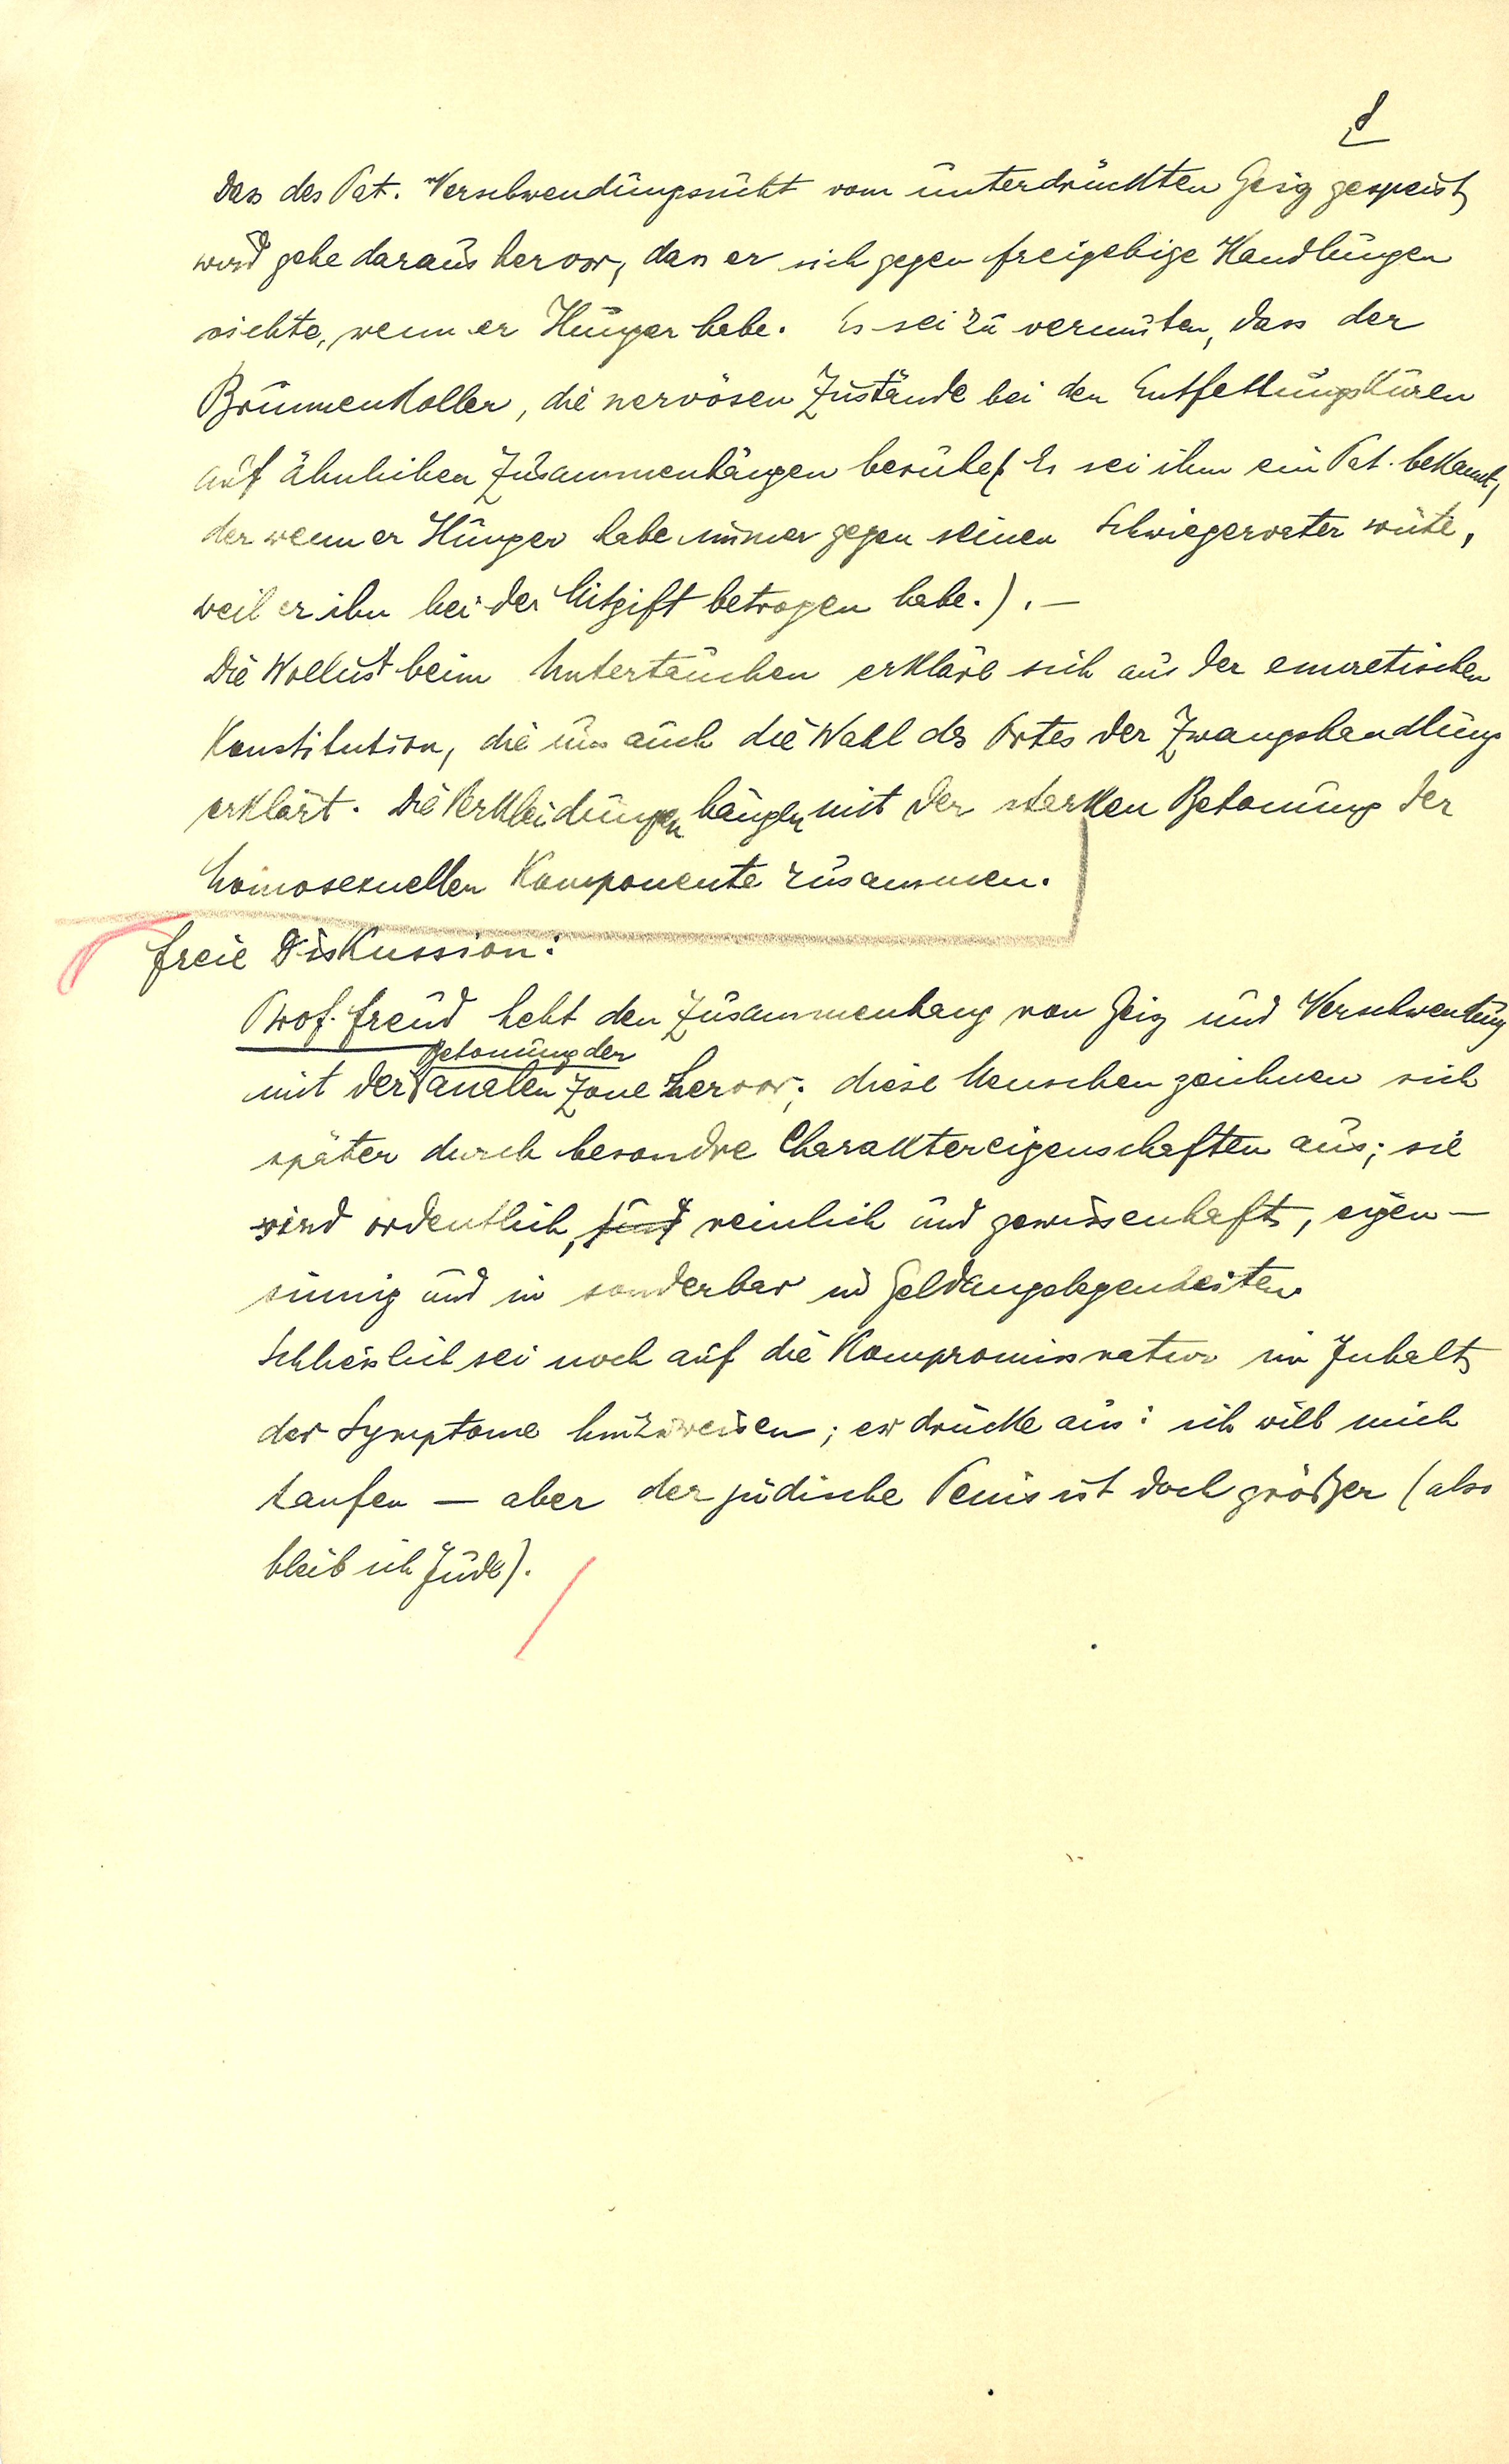 d
Dass des Pat. Verschwendungssucht vom unterdrückten Geiz gespeist
wird gehe daraus hervor, dass er sich gegen freigebige Handlungen
richte, wenn er Hunger habe. Es sei zu vermuten, dass der
Brunnenkoller, die nervösen Zustände bei den Entfettungskuren
auf ähnlichen Zusammenhängen beruhe (Es sei ihm ein Pat. bekannt,
der wenn er Hunger habe immer gegen seinen Schwiegervater wüte,
weil er ihn bei der Mitgift betrogen habe.). —
Die Wollust beim Untertauchen erkläre sich aus der enuretischen
Konstitution, die uns auch die Wahl des Ortes der Zwangshandlung
erklärt. Die Verkleidungen hängen mit der starken Betonung der
homosexuellen Komponente zusammen.
Freie Diskussion:
Prof. Freud hebt den Zusammenhang von Geiz und Verschwendung
Betonung der
mit der analen Zone hervor; diese Menschen zeichnen sich
später durch besondre Charaktereigenschaften aus; sie
sind ordentlich, sind reinlich und gewissenhaft, eigen-
sinnig und in sonderbar in Geldangelegenheiten.
Schliesslich sei noch auf die Kompromissnatur im Inhalt
der Symptome hinzuweisen; er drücke aus: ich will mich
taufen — aber der jüdische Penis ist doch größer (also
bleib ich Jude).